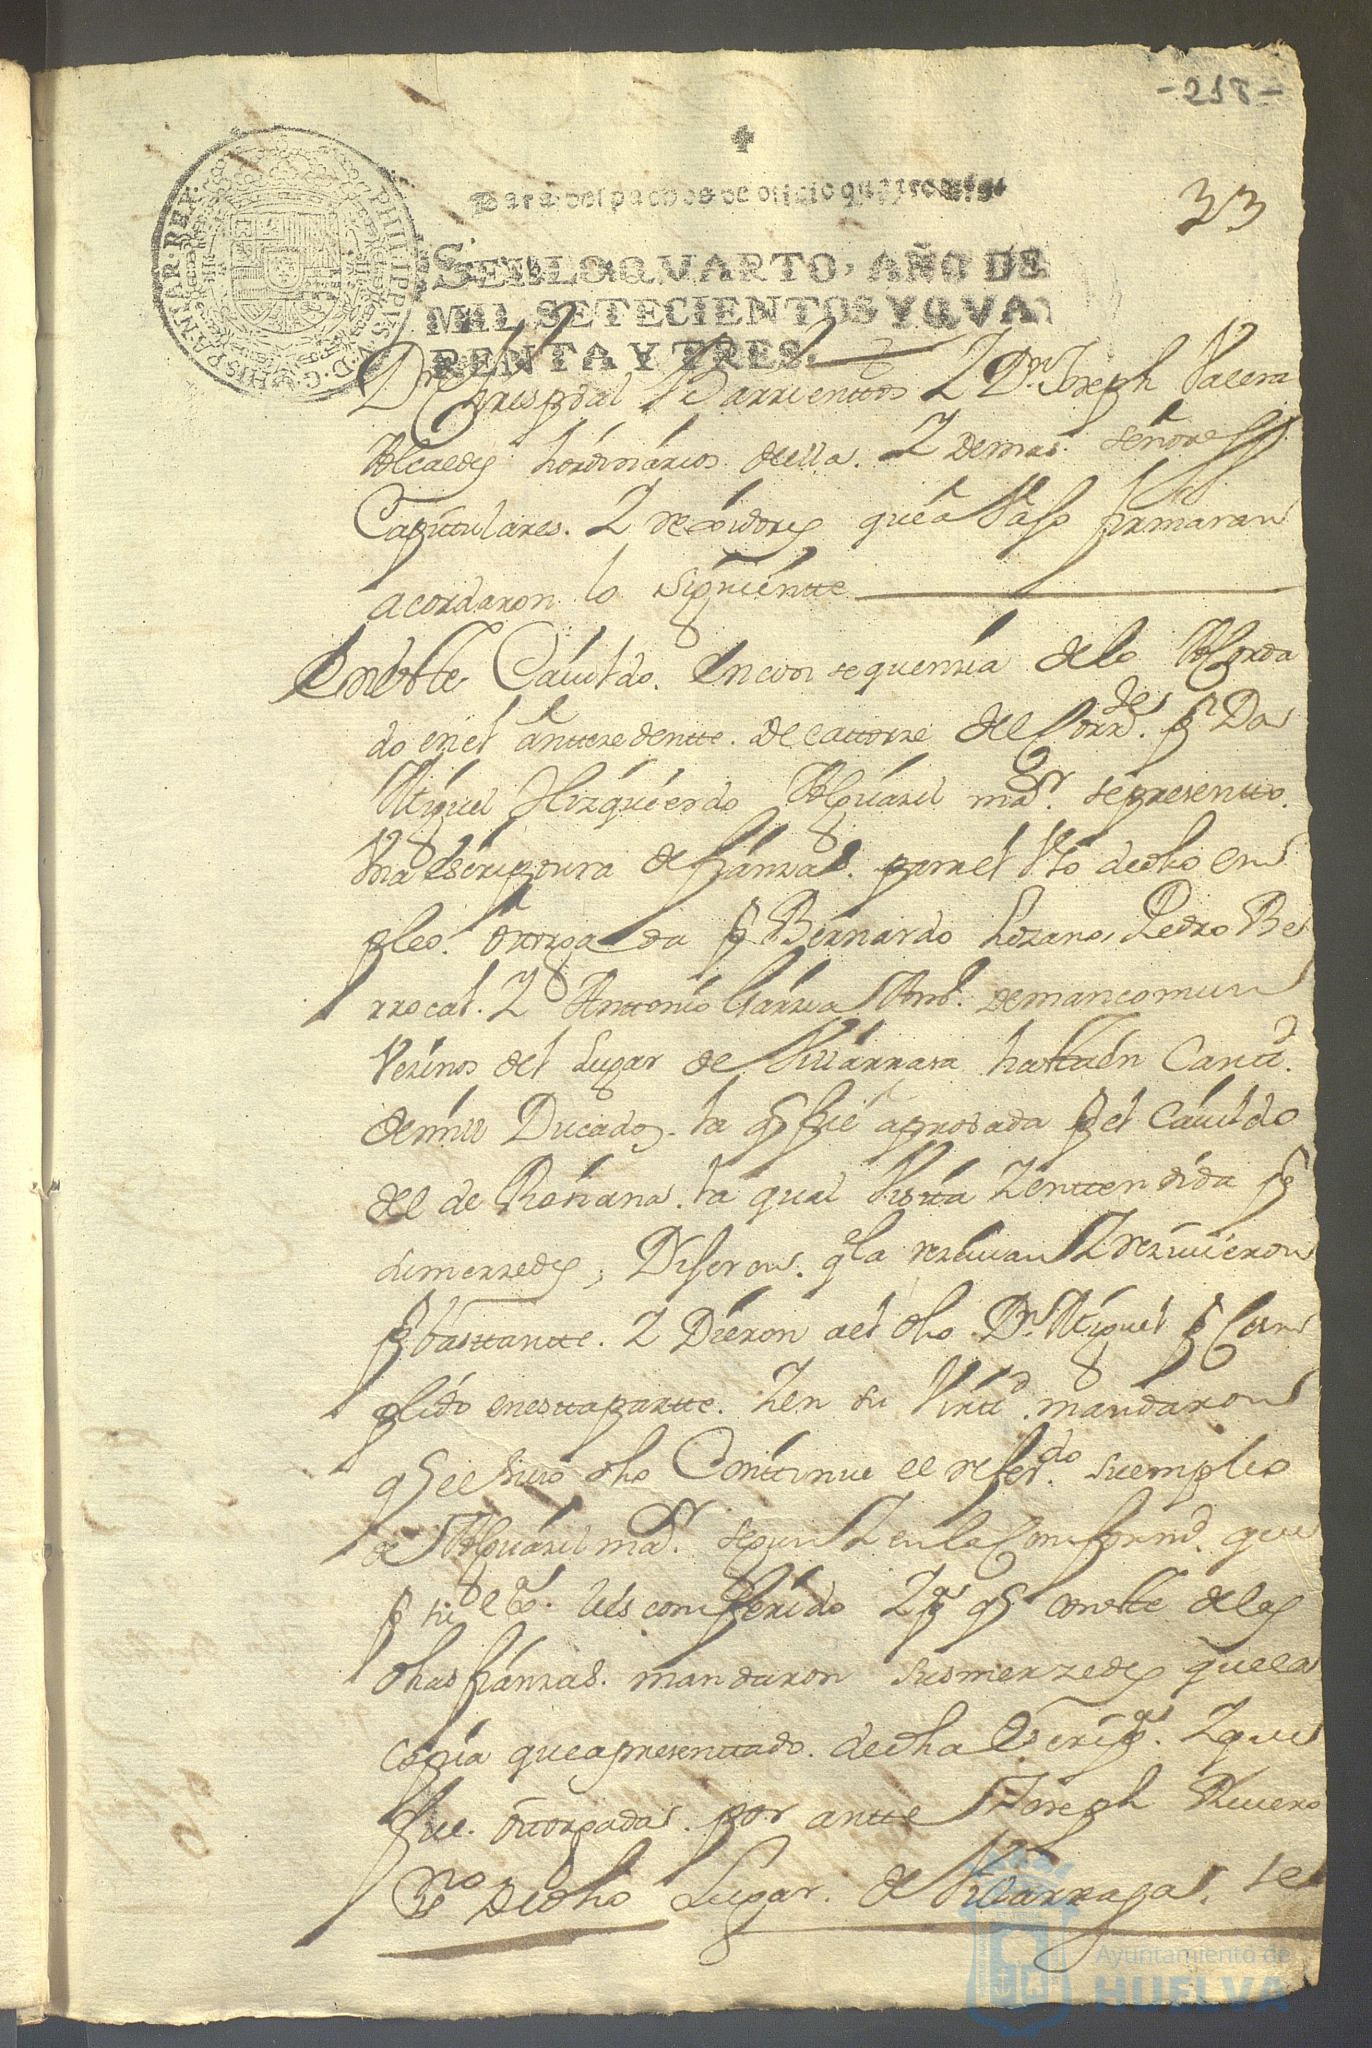 -218-
33
Para despachos de oficio quatro mrs.
SELLO QVARTO, AÑO DE
MIL SETECIENTOS Y QVA
RENTA Y TRES.
HISPANIAR. REX. PHILIPPVS. V. D. G.
Dn Chrisptoal Barrienttos Y Dn Joseph Valera
Alcaldes hordinarios della. Y demas señores
Capittulares. Y rexidores que a Vaso firmaran
acordaron lo siguientte
En este Cavildo. En consequenzia de lo Acorda
do en el anttezedentte. de cattorze del Corrte. pr Dn
Miguel Hizquierdo Alguazil mar. se presentto.
Vna escripttura de fianzas. para el Vso decho em
pleo. ottorgada pr Bernardo Lozano, Pedro Be
rrocal. Y Anttonio Garzia demancomun
Vezinos del Lugar de Villarrasa hasta en Cantd.
de mill Ducados. la q fue aprobada pr el Cavildo
del de Roziana. la qual Vistta Y enttendida pr
sumerzedes, Dijeron. q la rezivian Y rezivieron
pr basttantte. Y Dieron a el dho Dn Miguel pr Cum
plido en estta partte. Y en su Virttd. mandaron
q el suso dho Conttinue el referdo. su empleo
de Alguazil mar. segun Y en la Conformd. que
pr su exa. les conferido Y pa q conste de las
dhas fianzas. mandaron sus merzedes que la
copia que a presenttado. decha Escripa. Y que
fue. ottorgadas. por antte Joseph Rivero
sno Decho Lugar. de Villarrasa. se
Ayuntamiento de
HUELVA